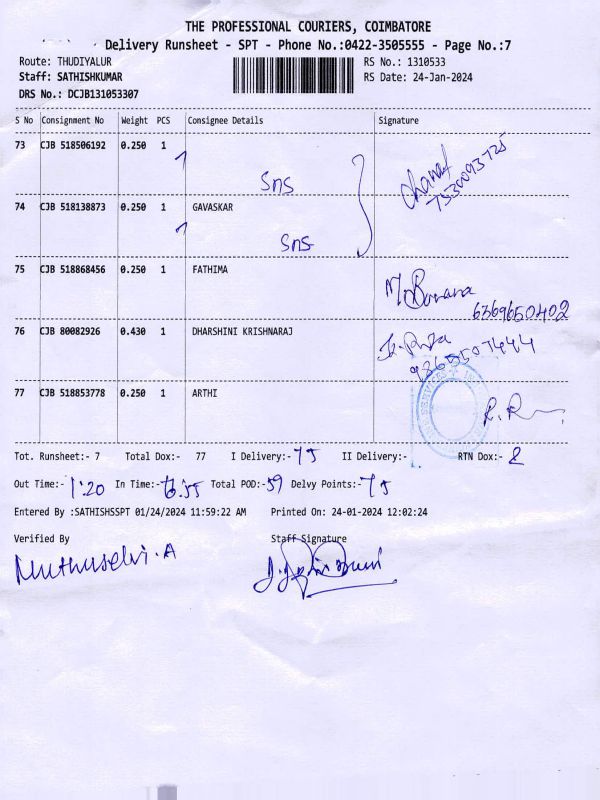 THE PROFESSIONAL COURIERS, COIMBATORE
Delivery Runsheet - SPT - Phone No.:0422-3505555 - Page No.:7
Route: THUDIYALUR RS No.: 1310533
Staff: SATHISHKUMAR RS Date: 24-Jan-2024
DRS No.: DCJB131053307
S No Consignment No Weight PCS Consignee Details Signature
73 CJB 518506192 0.250 1
SnS
7530093725
74 CJB 518138873 0.250 1 GAVASKAR
SnS
75 CJB 518868456 0.250 1 FATHIMA
6369650402
76 CJB 80082926 0.430 1 DHARSHINI KRISHNARAJ
77 CJB 518853778 0.250 1 ARTHI
Tot. Runsheet:- 7 Total Dox:- 77 I Delivery:- 75 II Delivery:- RTN Dox:- 2
Out Time:- 1:20 In Time:- Total POD:- 59 Delvy Points:- 75
Entered By :SATHISHSSPT 01/24/2024 11:59:22 AM Printed On: 24-01-2024 12:02:24
Verified By Staff Signature
Muthuselvi.A